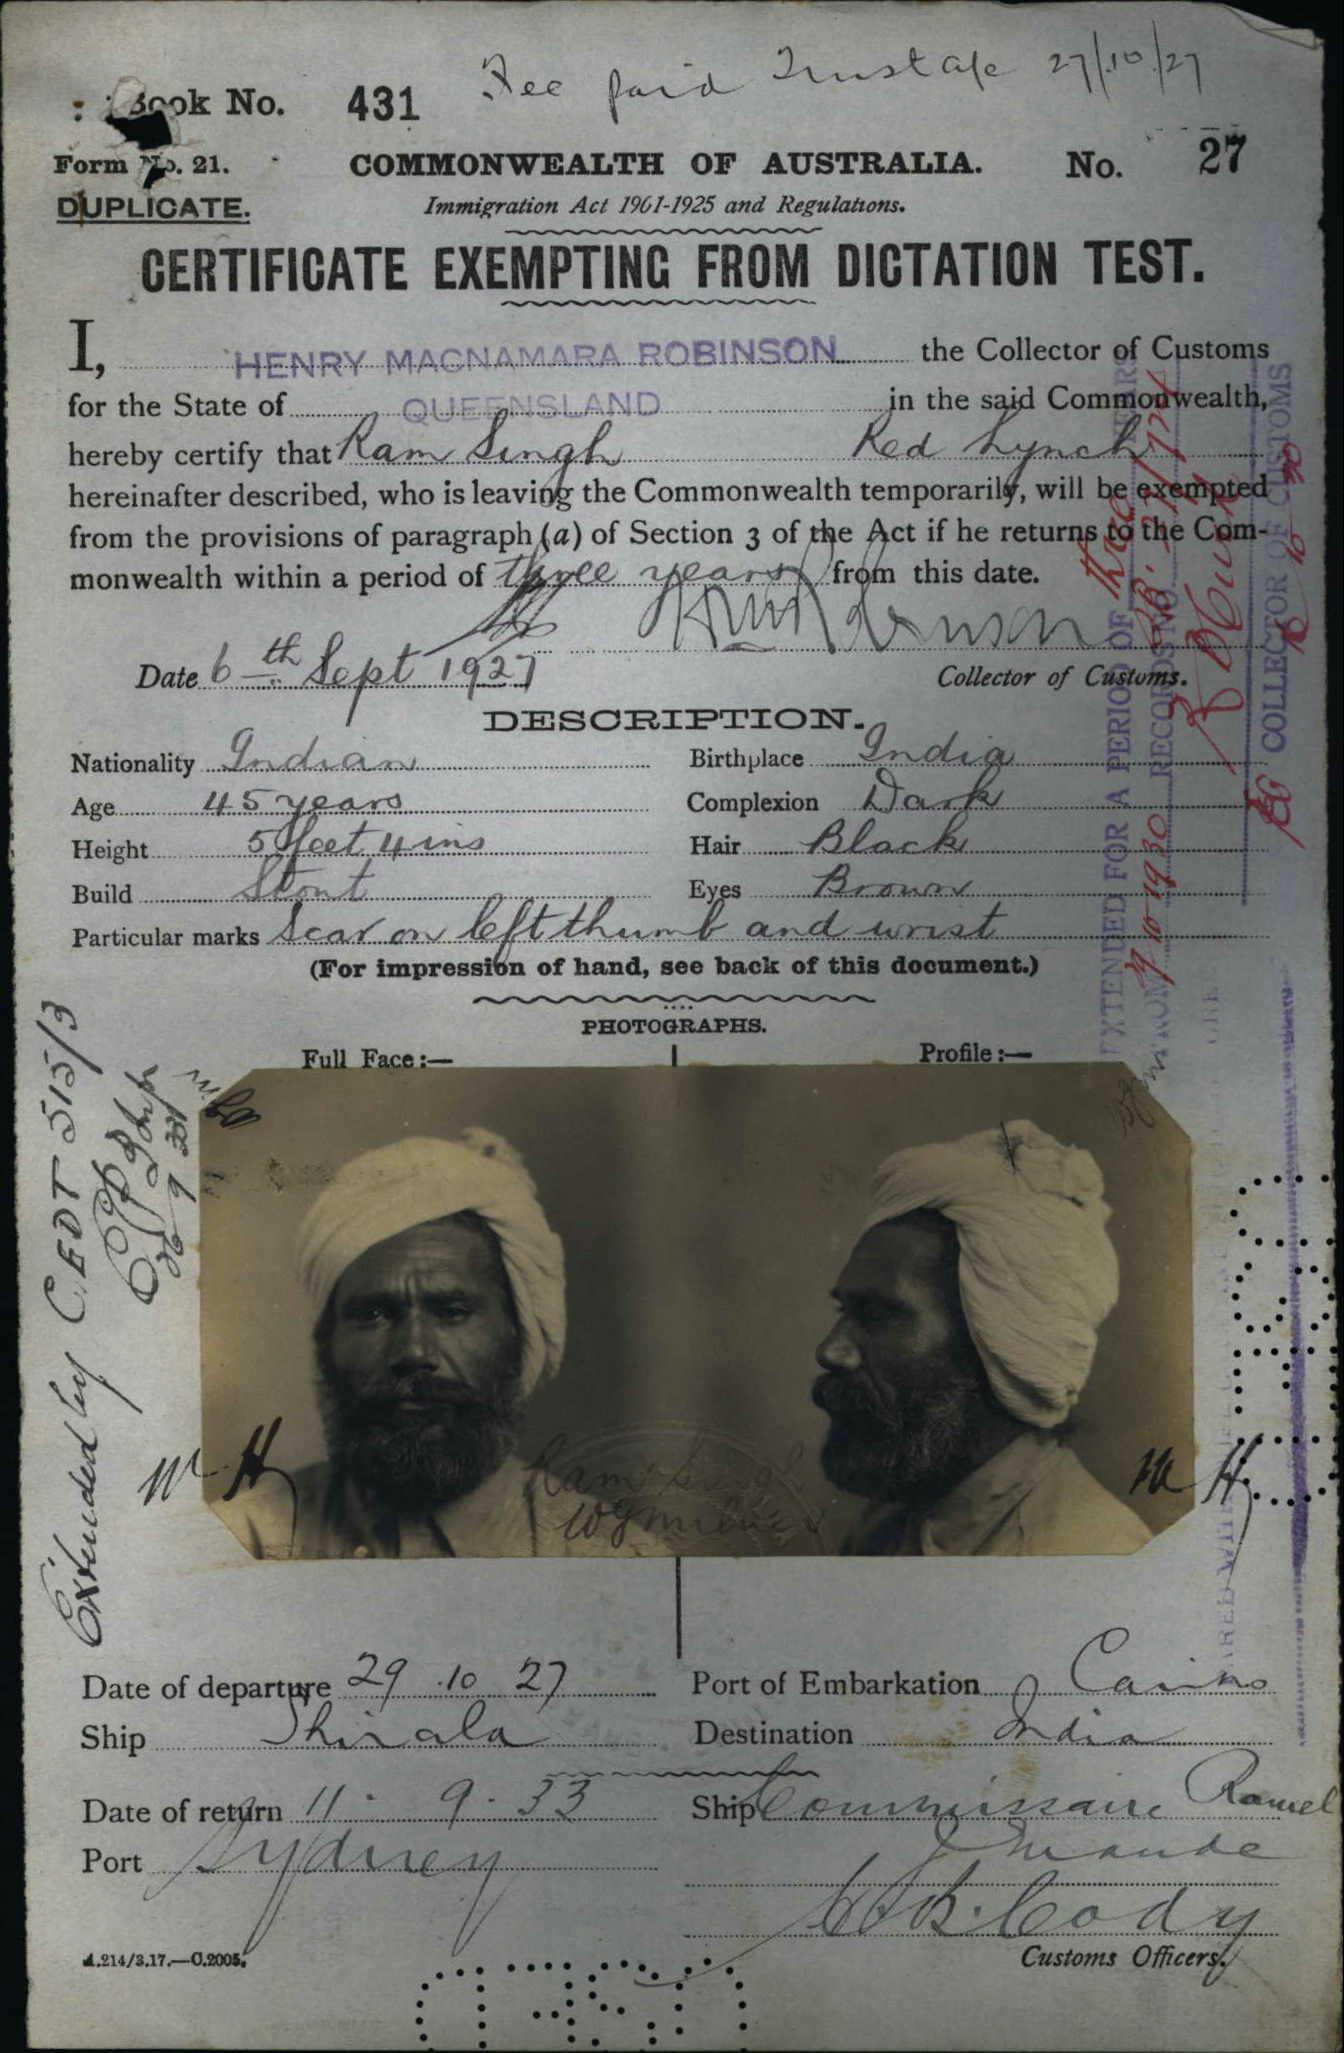 Fee paid Trust a/c 27/10/27
Book No. 431
Form No. 21.
COMMONWEALTH OF AUSTRALIA. No. 27
DUPLICATE.
Immigration Act 1901-1925 and Regulations.
CERTIFICATE EXEMPTING FROM DICTATION TEST.
I, HENRY MACNAMARA ROBINSON the Collector of Customs
for the State of QUEENSLAND in the said Commonwealth,
hereby certify that Ram Singh Red Lynch
hereinafter described, who is leaving the Commonwealth temporarily, will be exempted
from the provisions of paragraph (a) of Section 3 of the Act if he returns to the Com-
monwealth within a period of three years from this date.
Date 6th Sept 1927 Collector of Customs.
DESCRIPTION.
Nationality Indian Birthplace India
Age 45 years Complexion Dark
Height 5 feet 4 ins Hair Black
Build Stout Eyes Brown
Particular marks Scar on left thumb and wrist
(For impression of hand, see back of this document.)
PHOTOGRAPHS.
Full Face:— Profile:—
EXTENDED FOR A PERIOD OF three YEARS
RECORDS NO.
COLLECTOR OF CUSTOMS
Extended by CEDT 515/3
W H
Ram Singh
Date of departure 29.10 27 Port of Embarkation Cairns
Ship Shirala Destination India
Date of return 11. 9. 33 Ship Commissaire Ramel
Port Sydney
Customs Officers.
A.214/3.17.—C.2005.